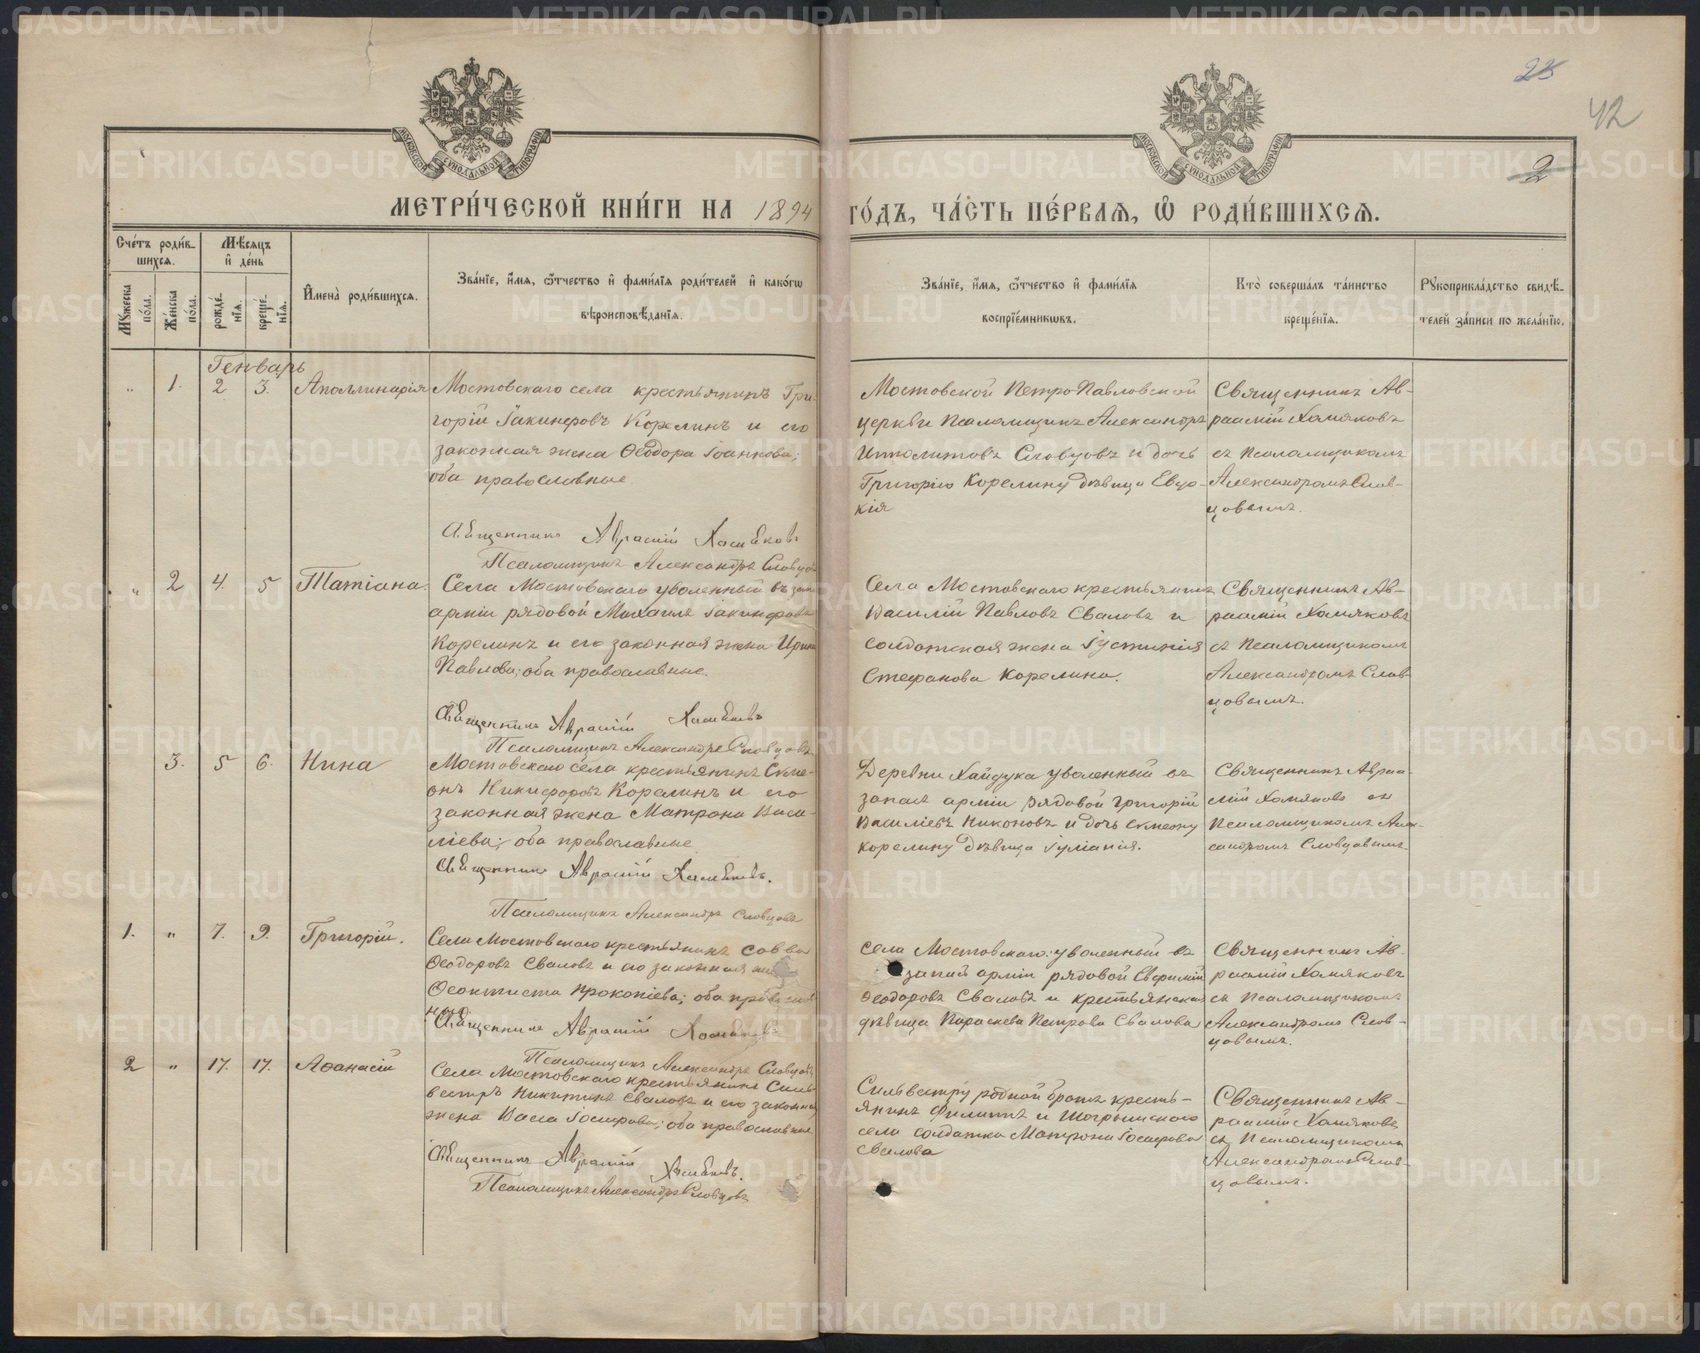 25
42
2
МОСКОВСКОЙ СѴНОДАЛЬНОЙ ТИПОГРАФІИ
МОСКОВСКОЙ СѴНОДАЛЬНОЙ ТИПОГРАФІИ
МЕТРИ́ЧЕСКОЙ КНИ́ГИ НА 1894 ГО́ДЪ, ЧА́СТЬ ПЕ́РВАѦ, Ѡ РОДИ́ВШИХСѦ.
Сче́тъ роди́в-
шихсѧ.
Мꙋжеска по́ла.
Же́нска по́ла.
Мѣ́сѧцъ
и́ де́нь
рожде́-
нїѧ.
креще́-
нїѧ.
И́мена̀ роди́вшихсѧ.
Зва́нїе, и́мѧ, ѻ́тчество и́ фами́лїѧ роди́телей и́ како́гѡ
вѣроисповѣ́данїѧ.
Зва́нїе, и́мѧ, ѻ́тчество и́ фами́лїѧ
воспрїе́мникѡвъ.
Кто̀ соверша́лъ та́инство
креще́нїѧ.
Рꙋкоприкла́дство свидѣ́-
телей за́писи по жела́нїю.
Генварь
" 1. 2 3. Аполлинарія
Мостовскаго села крестьянинъ Гри-
горій Іакинфовъ Корелинъ и его
законная жена Ѳеодора Іоаннова;
оба православные.
Священникъ Аврамій Хомяковъ
Псаломщикъ Александръ Словцовъ
Мостовской Петропавловской
церкви Псаломщикъ Александръ
Ипполитовъ Словцовъ и дочь
Григорію Корелину дѣвица Евдо-
кія
Священникъ Ав-
раамій Хомяковъ
съ Псаломщикомъ
Александромъ Слов-
цовымъ.
" 2 4. 5 Татіана.
Села Мостовскаго уволенный въ запас
арміи рядовой Михаилъ Іакинфовъ
Корелинъ и его законная жена Ирина
Павлова; оба православные.
Священникъ Аврамій Хомяковъ
Псаломщикъ Александръ Словцовъ
Села Мостовскаго крестьянинъ
Василій Павловъ Сваловъ и
солдатская жена Іустинія
Стефанова Корелина.
Священникъ Ав-
раамій Хомяковъ
съ Псаломщикомъ
Александромъ Слов-
цовымъ.
3. 5 6. Нина
Мостовскаго села крестьянинъ Сѵме-
онъ Никифоровъ Корелинъ и его
законная жена Матрона Васи-
ліева; оба православные.
Священникъ Аврамій Хомяковъ.
Псаломщикъ Александръ Словцовъ
Деревни Хайдука уволенный въ
запасъ арміи рядовой Григорій
Василіевъ Никоновъ и дочь Сѵмеону
Корелину дѣвица Іуліанія.
Священникъ Авраа-
мій Хомяковъ съ
Псаломщикомъ Алек-
сандромъ Словцовымъ
1. " 7. 9. Григорій.
Села Мостовскаго крестьянинъ Савва
Ѳеодоровъ Сваловъ и его законная жена
Ѳеоктиста Прокопіева; оба православ-
ные
Священникъ Аврамій Хомяковъ
Псаломщикъ Александръ Словцовъ
Села Мостовскаго уволенный въ
запасъ арміи рядовой Евфимій
Ѳеодоровъ Сваловъ и крестьянская
дѣвица Параскева Петрова Свалова
Священникъ Ав-
раамій Хомяковъ
съ Псаломщикомъ
Александромъ Слов-
цовымъ.
2 " 17. 17. Аѳанасій
Села Мостовскаго крестьянинъ Силь-
вестръ Никитинъ Сваловъ и его законная
жена Васса Іосифова; оба православные
Священникъ Аврамій Хомяковъ.
Псаломщикъ Александръ Словцовъ
Сильвестру родной братъ кресть-
янинъ Филиппъ и Шогрышскаго
села солдатка Матрона Іосифова
Свалова
Священникъ Ав-
раамій Хомяковъ
съ Псаломщикомъ
Александромъ Слов-
цовымъ.
METRIKI.GASO-URAL.RU